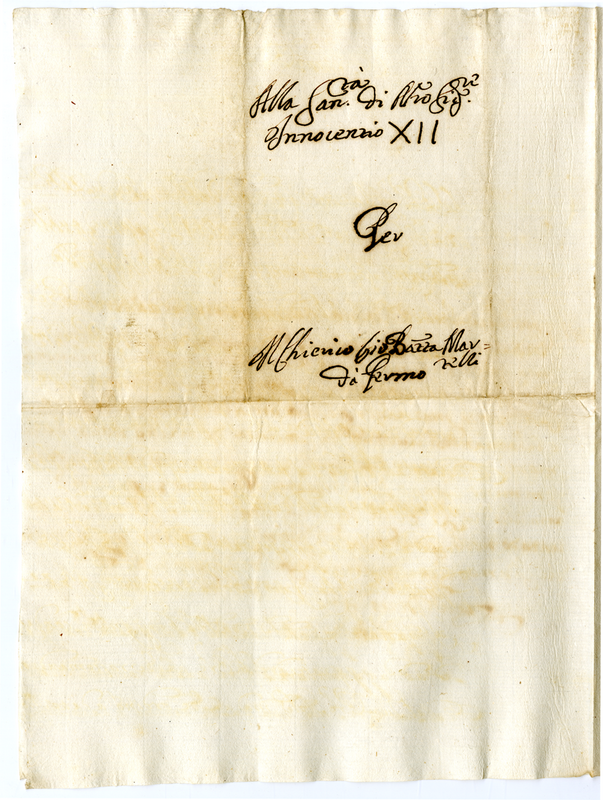 Alla San.tà di N̄ro Sig.re
Innocenzio XII
Per
Il Chierico Gio Batta Mar=
telli
da Fermo